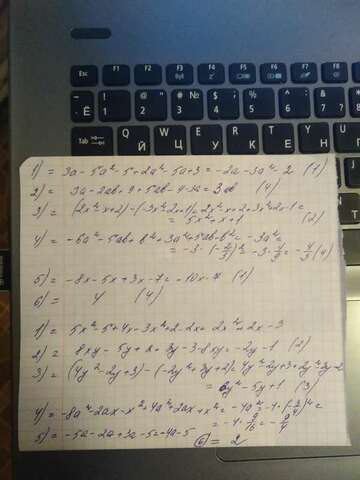 Esc F1 F2 F3 F4 F5 F6 F7 F8
1) = 3a - 5a² - 5 + 2a² - 5a + 3 = -2a - 3a² - 2 (1)
2) = 3a - 2ab + 9 + 5ab - 9 - 3a = 3ab (4)
3) = (2x² - x + 2) - (-3x² - 2x + 1) = 2x² - x + 2 + 3x² + 2x - 1 =
= 5x² + x + 1 (2)
4) = -6a² - 5ab + b² + 3a² + 5ab - b² = -3a² =
= -3 · (-2/3)² = -3 · 4/9 = -4/3 (4)
5) = -8x - 5x + 3x - 7 = -10x - 7 (1)
6) = 4 (4)
1) = 5x² - 5 + 4x - 3x² + 2 - 2x = 2x² + 2x - 3
2) = 8xy - 5y + 2 + 3y - 3 - 8xy = -2y - 1 (2)
3) = (4y² - 2y + 3) - (-2y² + 3y + 2) = 4y² - 2y + 3 + 2y² - 3y - 2
= 6y² - 5y + 1 (3)
4) = -8a² - 2ax - x² + 4a² + 2ax + x² = -4a² = -4 · (-3/4)² =
= -4 · 9/16 = -9/4
5) = -5a - 2a + 3a - 5 = -4a - 5
6) = 2